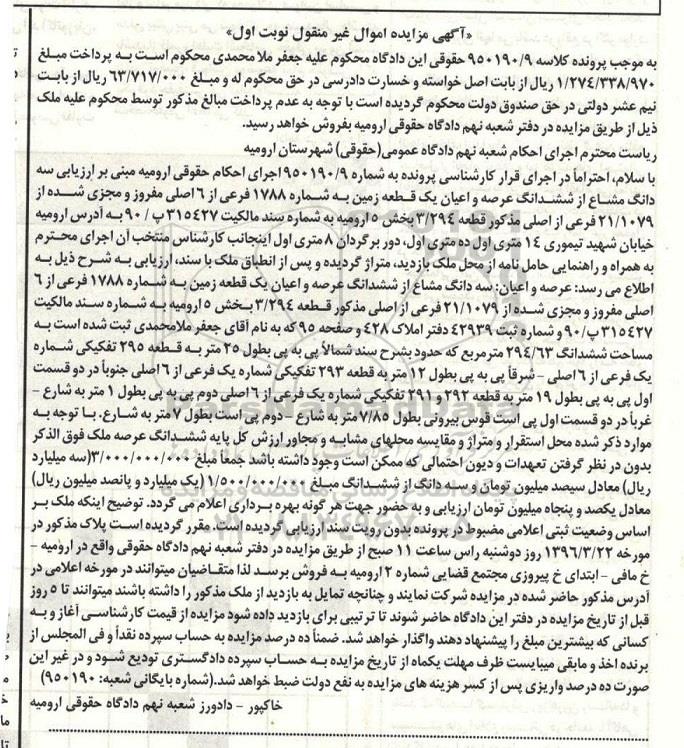 «آگهی مزایده اموال غیر منقول نوبت اول»
به موجب پرونده کلاسه ۹۵۰۱۹۰/۹ حقوقی این دادگاه محکوم علیه جعفر ملا محمدی محکوم است به پرداخت مبلغ
۱/۲۷۴/۳۳۸/۹۷۰ ریال از بابت اصل خواسته و خسارت دادرسی در حق محکوم له و مبلغ ۶۳/۷۱۷/۰۰۰ ریال از بابت
نیم عشر دولتی در حق صندوق دولت محکوم گردیده است با توجه به عدم پرداخت مبالغ مذکور توسط محکوم علیه ملک
ذیل از طریق مزایده در دفتر شعبه نهم دادگاه حقوقی ارومیه بفروش خواهد رسید.
ریاست محترم اجرای احکام شعبه نهم دادگاه عمومی(حقوقی) شهرستان ارومیه
با سلام، احتراماً در اجرای قرار کارشناسی پرونده به شماره ۹۵۰۱۹۰/۹ اجرای احکام حقوقی ارومیه مبنی بر ارزیابی سه
دانگ مشاع از ششدانگ عرصه و اعیان یک قطعه زمین به شماره ۱۷۸۸ فرعی از ۶ اصلی مفروز و مجزی شده از
۲۱/۱۰۷۹ فرعی از اصلی مذکور قطعه ۳/۲۹۴ بخش ۵ ارومیه به شماره سند مالکیت ۳۱۵۴۲۷ پ/۹۰ به آدرس ارومیه
خیابان شهید تیموری ۱۴ متری اول ده متری اول، دور برگردان ۸ متری اول اینجانب کارشناس منتخب آن اجرای محترم
به همراه و راهنمایی حامل نامه از محل ملک بازدید، متراژ گردیده و پس از انطباق ملک با سند، ارزیابی به شرح ذیل به
اطلاع می رسد: عرصه و اعیان: سه دانگ مشاع از ششدانگ عرصه و اعیان یک قطعه زمین به شماره ۱۷۸۸ فرعی از ۶
اصلی مفروز و مجزی شده از ۲۱/۱۰۷۹ فرعی از اصلی مذکور قطعه ۳/۲۹۴ بخش ۵ ارومیه به شماره سند مالکیت
۳۱۵۴۲۷ پ/۹۰ و شماره ثبت ۴۲۹۳۹ دفتر املاک ۴۲۸ و صفحه ۹۵ که به نام آقای جعفر ملامحمدی ثبت شده است به
مساحت ششدانگ ۲۹۴/۶۳ مترمربع که حدود بشرح سند شمالاً پی به پی بطول ۲۵ متر به قطعه ۲۹۵ تفکیکی شماره
یک فرعی از ۶ اصلی - شرقاً پی به پی بطول ۱۲ متر به قطعه ۲۹۳ تفکیکی شماره یک فرعی از ۶ اصلی جنوباً در دو قسمت
اول پی به پی بطول ۱۹ متر به قطعه ۲۹۲ و ۲۹۱ تفکیکی شماره یک فرعی از ۶ اصلی دوم پی به پی بطول ۱ متر به شارع -
غرباً در دو قسمت اول پی است قوس بیرونی بطول ۷/۸۵ متر به شارع - دوم پی است بطول ۷ متر به شارع. با توجه به
موارد ذکر شده محل استقرار و متراژ و مقایسه محلهای مشابه و مجاور ارزش کل پایه ششدانگ عرصه ملک فوق الذکر
بدون در نظر گرفتن تعهدات و دیون احتمالی که ممکن است وجود داشته باشد جمعاً مبلغ ۳/۰۰۰/۰۰۰/۰۰۰(سه میلیارد
ریال) معادل سیصد میلیون تومان و سه دانگ از ششدانگ مبلغ ۱/۵۰۰/۰۰۰/۰۰۰ (یک میلیارد و پانصد میلیون ریال)
معادل یکصد و پنجاه میلیون تومان ارزیابی و به حضور جهت هر گونه بهره برداری اعلام می گردد. توضیح اینکه ملک بر
اساس وضعیت ثبتی اعلامی مضبوط در پرونده بدون رویت سند ارزیابی گردیده است. مقرر گردیده است پلاک مذکور در
مورخه ۱۳۹۶/۳/۲۲ روز دوشنبه راس ساعت ۱۱ صبح از طریق مزایده در دفتر شعبه نهم دادگاه حقوقی واقع در ارومیه -
خ مافی - ابتدای خ پیروزی مجتمع قضایی شماره ۲ ارومیه به فروش برسد لذا متقاضیان میتوانند در مورخه اعلامی در
آدرس مذکور حاضر شده در مزایده شرکت نمایند و چنانچه تمایل به بازدید از ملک مذکور را داشته باشند میتوانند تا ۵ روز
قبل از تاریخ مزایده در دفتر این دادگاه حاضر شوند تا ترتیبی برای بازدید داده شود مزایده از قیمت کارشناسی آغاز و به
کسانی که بیشترین مبلغ را پیشنهاد دهند واگذار خواهد شد. ضمناً ده درصد مزایده به حساب سپرده نقداً و فی المجلس از
برنده اخذ و مابقی میبایست ظرف مهلت یکماه از تاریخ مزایده به حساب سپرده دادگستری تودیع شود و در غیر این
صورت ده درصد واریزی پس از کسر هزینه های مزایده به نفع دولت ضبط خواهد شد.(شماره بایگانی شعبه: ۹۵۰۱۹۰)
خاکپور - دادورز شعبه نهم دادگاه حقوقی ارومیه